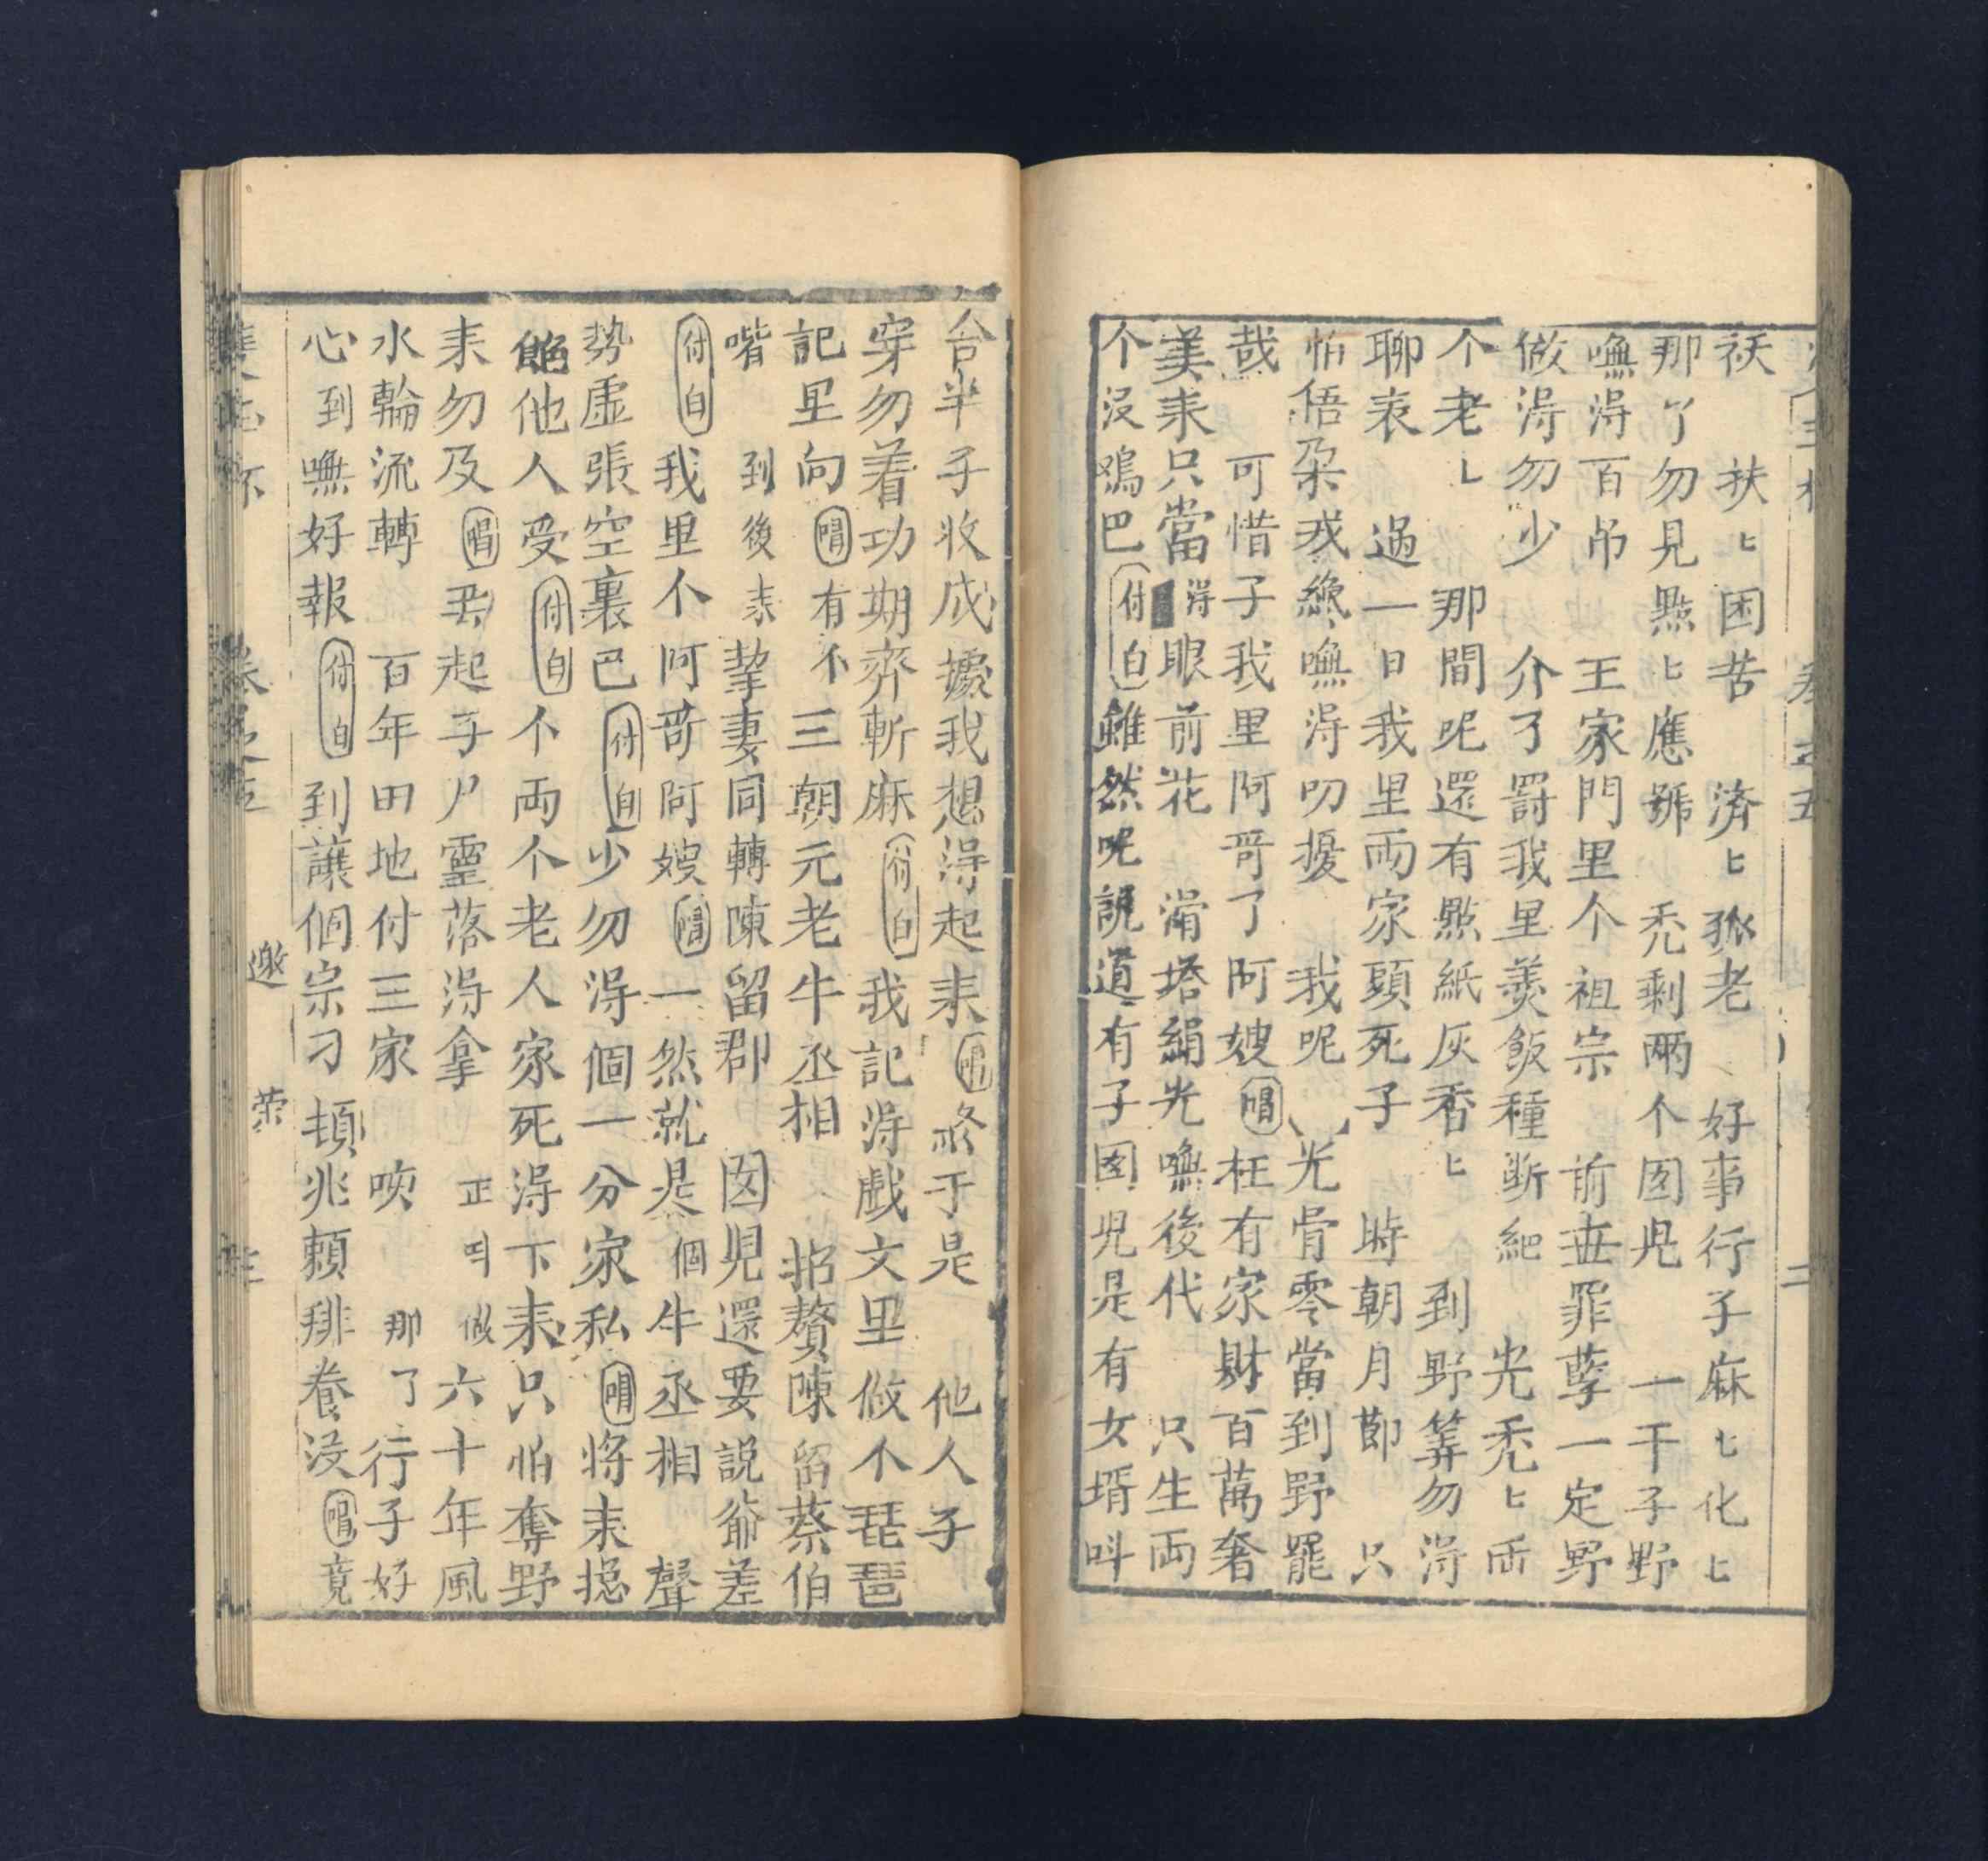 袄　扶匕困苦　済匕孤老　好事行子麻匕化匕
那了勿見點匕應號　禿剩兩个囡児　一干子野
嘸淂百吊　王家門里个祖宗　前丗罪孽一定野
做淂勿少　介了罸我里羮飯種断絕　光禿匕两
个老乚　那間呢還有點紙灰香匕　到野筭勿淂
聊表　過一日我里两家頭死子　時朝月節　只
怕悟朶戎總嘸淂叨擾　我呢　光骨零當到野罷
哉　可惜子我里阿哥了阿嫂唱枉有家財百萬奢
美耒只當淂眼前花　滑塔絹光嘸後代　只生两
个没鳮巴付白雖然呢説道有子囡児是有女壻呌
合半子收成據我想淂起耒唱終于是　他人子
穿勿着功期齊斬麻付白我記淂戲文里做个琵琶
記里向唱有个三朝元老牛丞相　招贅陳留蔡伯
喈　到後耒挈妻同轉陳留郡　囡児還要説爺差
付白我里个阿哥阿嫂唱一然就是個牛丞相　聲
勢虛張空裏巴付白少勿淂個一分家私唱将耒㧾
他人受付白个两个老人家死淂下耒只怕奪野
耒勿及唱丟起子尸靈落淂拿　正呌做六十年風
水輪流轉　百年田地付三家　唉　那了行子好
心到嘸好報付白到讓個宗刁頑兆頼排養没唱竟
卷之五